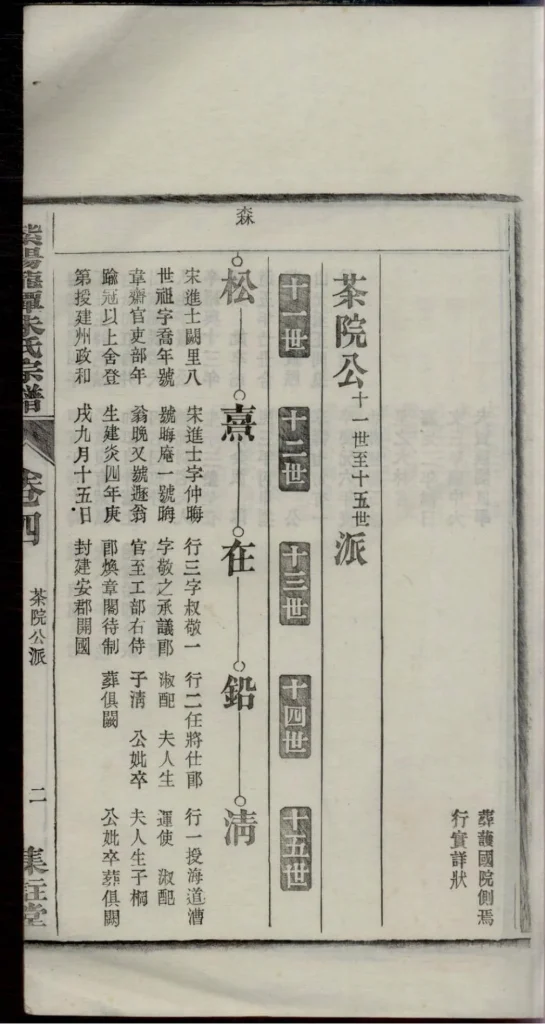 葬護國院側焉
行實詳狀
茶院公十一世至十五世派
十一世
十二世
十三世
十四世
十五世
森
松
宋進士闕里八
世祖字喬年號
韋齋官吏部年
踰冠以上舍登
第授建州政和
熹
宋進士字仲晦
號晦庵一號晦
翁晚又號遯翁
生建炎四年庚
戌九月十五日
在
行三字叔敬一
字敬之承議郎
官至工部右侍
郎煥章閣待制
封建安郡開國
鉛
行二任將仕郎
淑配 夫人生
子淸 公妣卒
葬俱闕
淸
行一授海道漕
運使 淑配
夫人生子桐
公妣卒葬俱闕
紫陽龍潭朱氏宗譜
卷四
茶院公派
二
集註堂